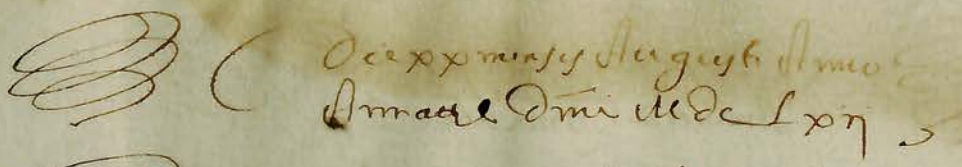 Die xx mensis Augusti Anno
Dm̄i MdcLxij